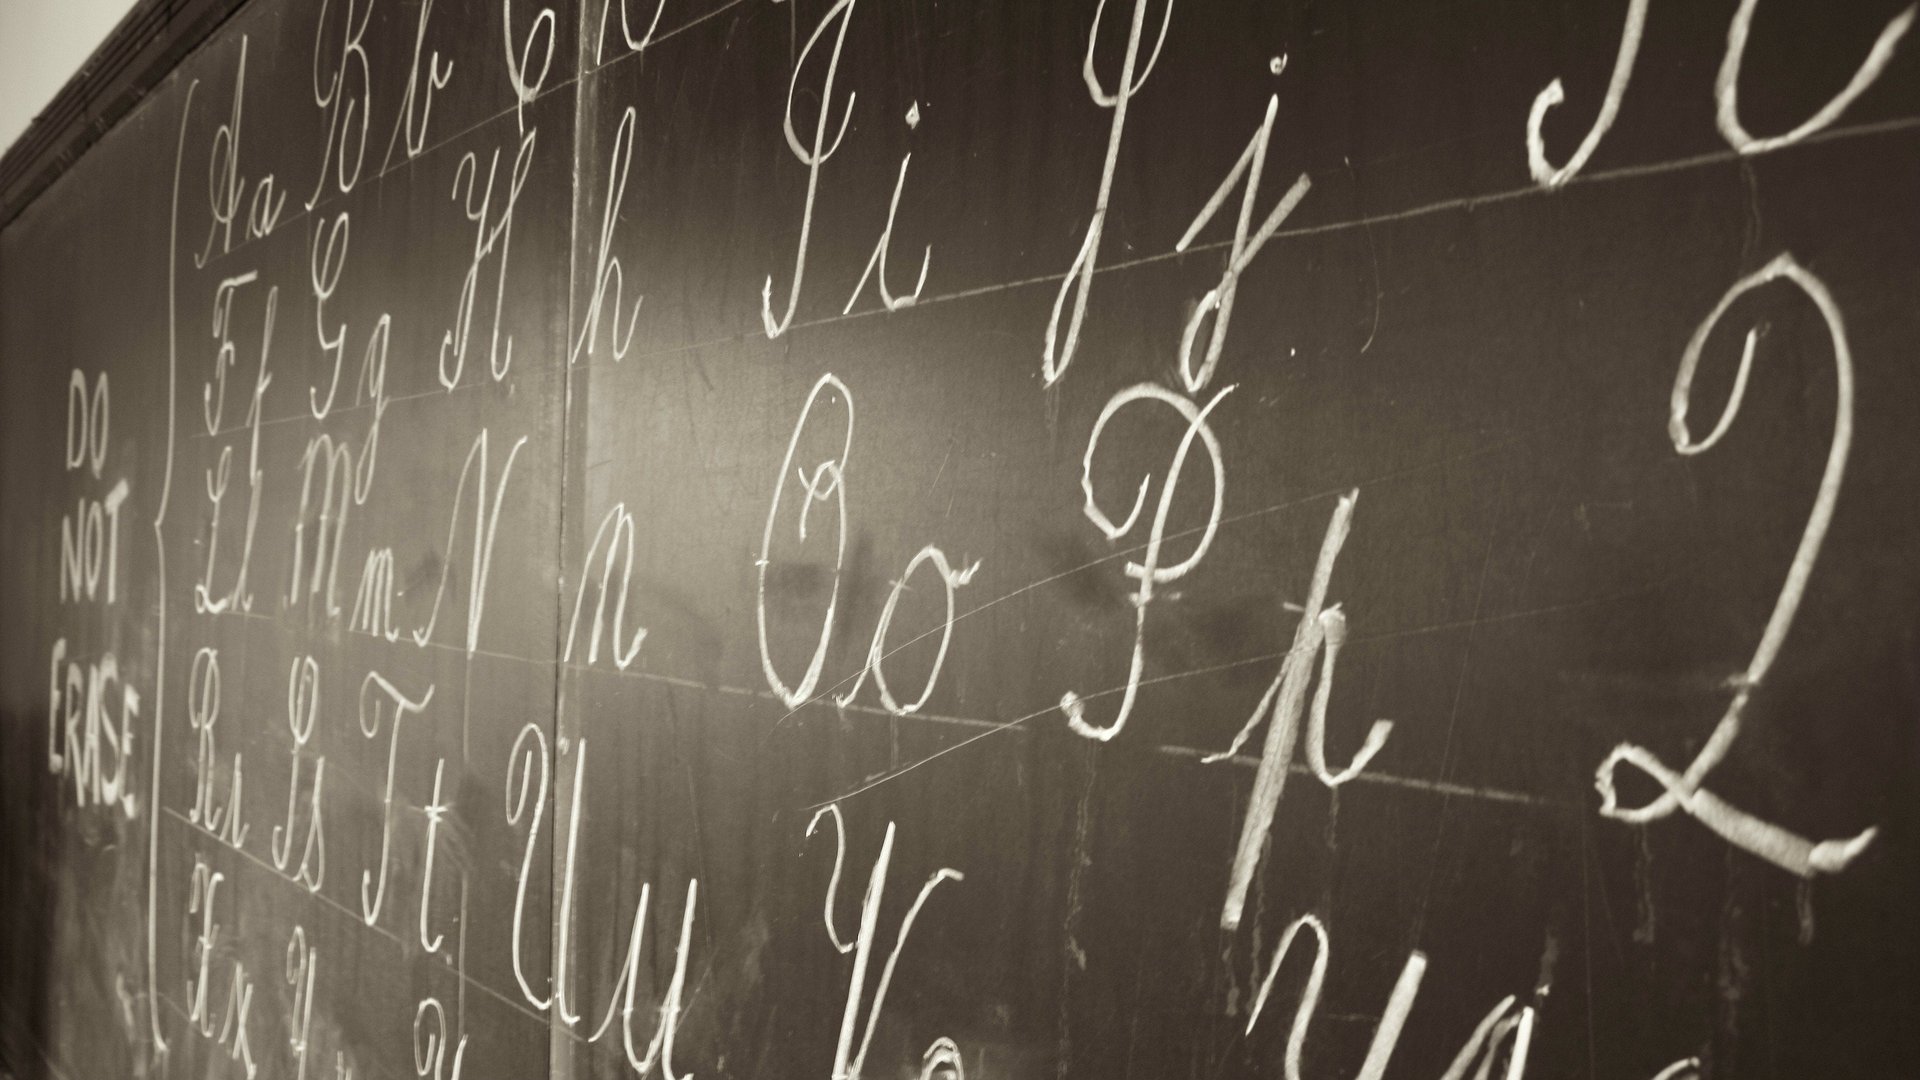 DO
NOT
ERASE
A a B b C
F f G g H h I i J j
L l M m N n O o P p Q
R r S s T t U u V
X x Y